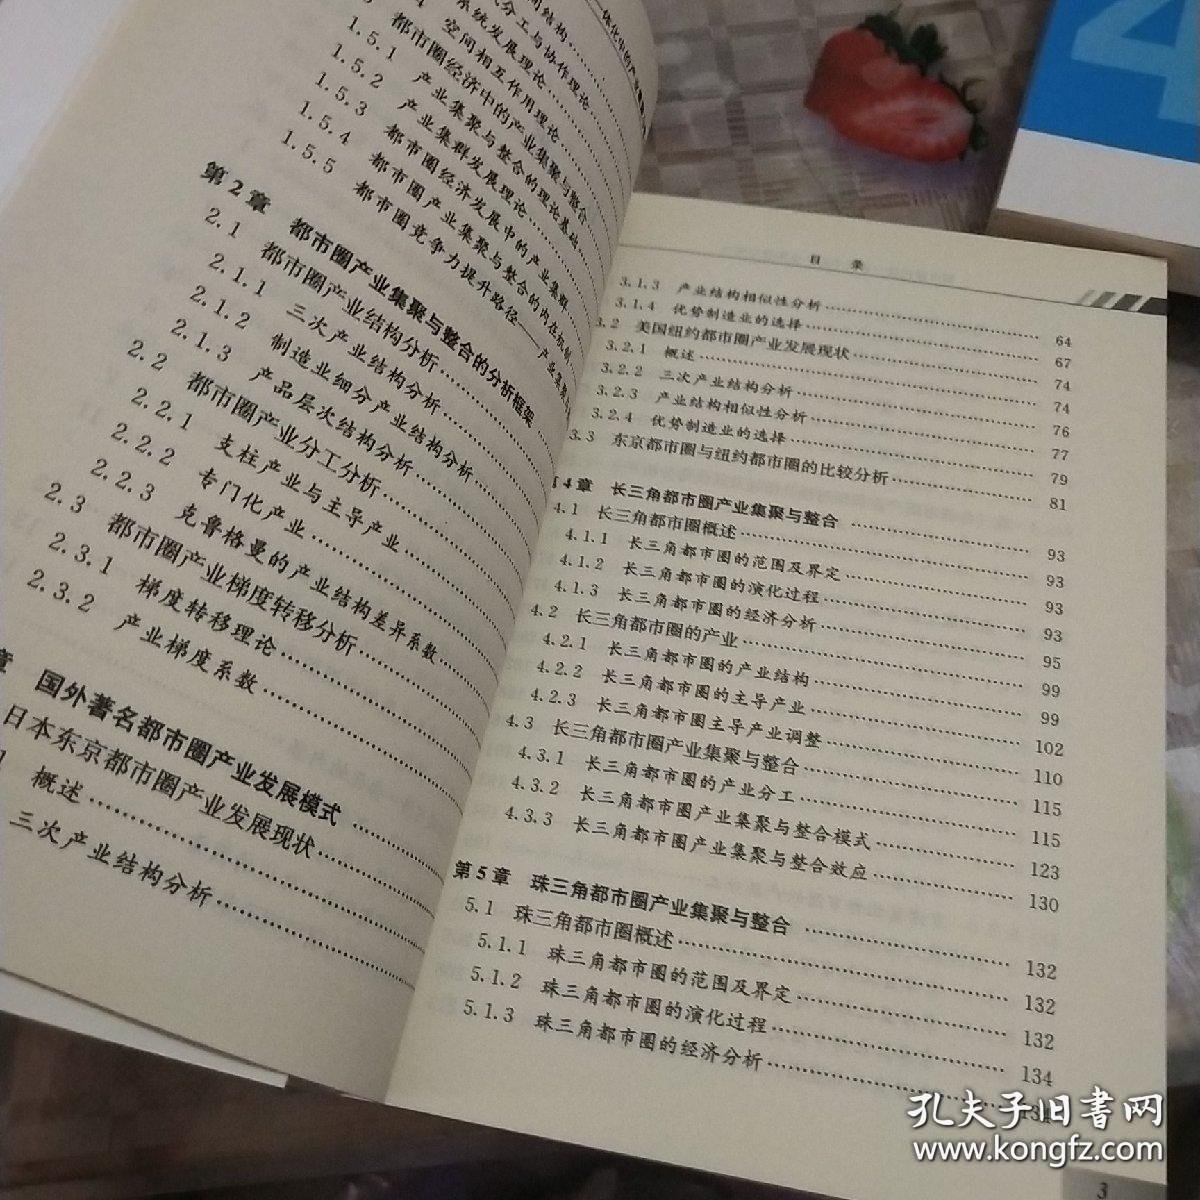 间结构
分工与协作理论
系统发展理论
空间相互作用理论
都市圈经济中的产业集聚与整合
1.5.1 产业集聚与整合的理论基础
1.5.2 产业集群发展理论
1.5.3 都市圈经济发展中的产业集群
1.5.4 都市圈产业集聚与整合的内在机制
1.5.5 都市圈竞争力提升路径——产业集聚
第2章 都市圈产业集聚与整合的分析框架
2.1 都市圈产业结构分析
2.1.1 三次产业结构分析
2.1.2 制造业细分产业结构分析
2.1.3 产品层次结构分析
2.2 都市圈产业分工分析
2.2.1 支柱产业与主导产业
2.2.2 专门化产业
2.2.3 克鲁格曼的产业结构差异系数
2.3 都市圈产业梯度转移分析
2.3.1 梯度转移理论
2.3.2 产业梯度系数
章 国外著名都市圈产业发展模式
日本东京都市圈产业发展现状
概述
三次产业结构分析
目 录
3.1.3 产业结构相似性分析 64
3.1.4 优势制造业的选择 67
3.2 美国纽约都市圈产业发展现状 74
3.2.1 概述 74
3.2.2 三次产业结构分析 76
3.2.3 产业结构相似性分析 77
3.2.4 优势制造业的选择 79
3.3 东京都市圈与纽约都市圈的比较分析 81
第4章 长三角都市圈产业集聚与整合 93
4.1 长三角都市圈概述 93
4.1.1 长三角都市圈的范围及界定 93
4.1.2 长三角都市圈的演化过程 93
4.1.3 长三角都市圈的经济分析 95
4.2 长三角都市圈的产业 99
4.2.1 长三角都市圈的产业结构 99
4.2.2 长三角都市圈的主导产业 102
4.2.3 长三角都市圈主导产业调整 110
4.3 长三角都市圈产业集聚与整合 115
4.3.1 长三角都市圈的产业分工 115
4.3.2 长三角都市圈产业集聚与整合模式 123
4.3.3 长三角都市圈产业集聚与整合效应 130
第5章 珠三角都市圈产业集聚与整合 132
5.1 珠三角都市圈概述 132
5.1.1 珠三角都市圈的范围及界定 132
5.1.2 珠三角都市圈的演化过程 134
5.1.3 珠三角都市圈的经济分析
3
4
孔夫子旧书网
www.kongfz.com